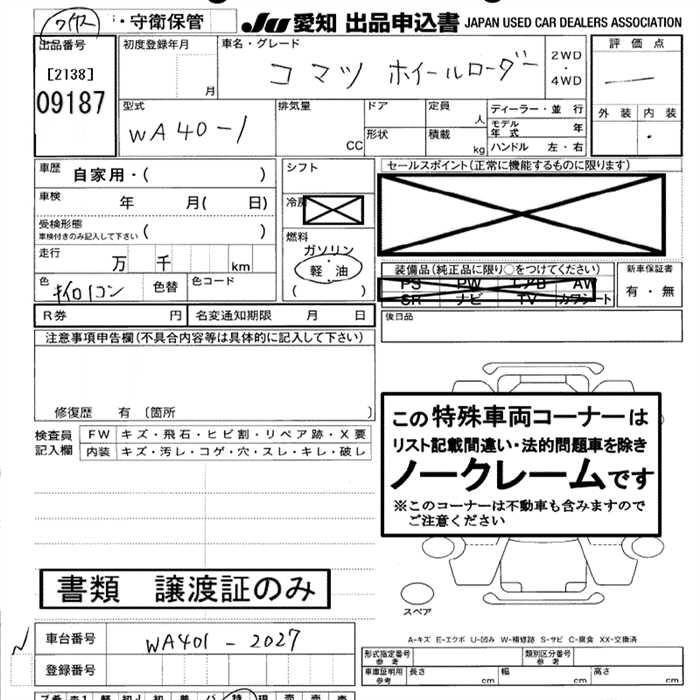 ワイヤス ・守衛保管 JU 愛知 出品申込書 JAPAN USED CAR DEALERS ASSOCIATION
出品番号 初度登録年月 車名・グレード 評価点
[2138] 月 コマツ ホイールローダー 2WD ・ 4WD
09187
型式 排気量 ドア 定員 ディーラー・並 行 外装 内装
WA40-1 人 モデル年式 年
CC 形状 積載 kg ハンドル 左・右
車歴 自家用・( ) シフト セールスポイント(正常に機能するものに限ります)
車検 年 月( 日) 冷房
受検形態
車検付きのみ記入して下さい ( ) 燃料
ガソリン
走行 万 千 km 軽 油 装備品(純正品に限り○をつけてください) 新車保証書
色 色替 色コード ( ) PS PW エアB AW 有・無
SR ナビ TV カワシート
R券 円 名変通知期限 月 日 後日品
注意事項申告欄(不具合内容等は具体的に記入して下さい)
修復歴 有 〔箇所 〕
この特殊車両コーナーは
リスト記載間違い・法的問題車を除き
ノークレームです
※このコーナーは不動車も含みますので
ご注意ください
検査員 FW キズ・飛石・ヒビ割・リペア跡・X要
記入欄 内装 キズ・汚レ・コゲ・穴・スレ・キレ・破レ
書類 譲渡証のみ
スペア
A-キズ E-エクボ U-凹み W-補修跡 S-サビ C-腐食 XX-交換済
車台番号 WA401-2027
登録番号
形式指定番号 参考 類別区分番号 参考
車庫証明用 参考 長さ cm 幅 cm 高さ cm